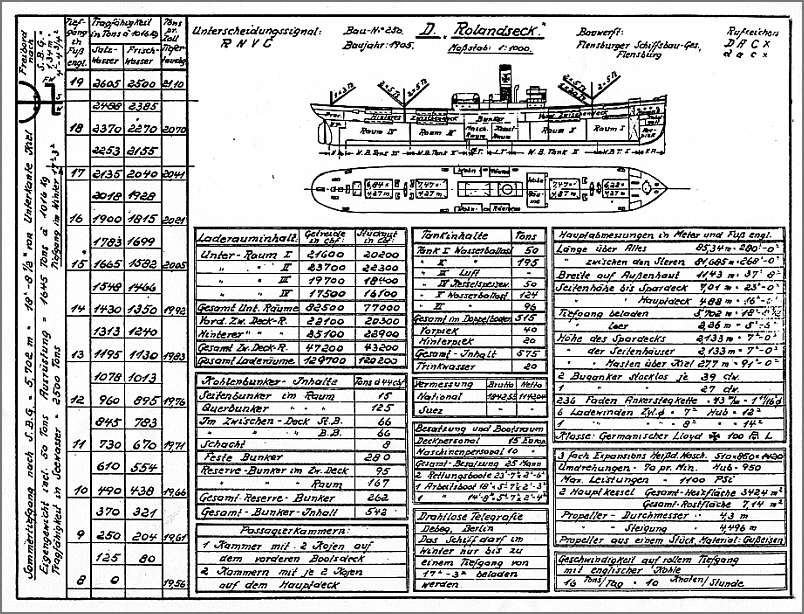 Unterscheidungssignal:
R N V C
Bau-No 250.
Baujahr: 1905.
D. "Rolandseck."
Maßstab: 1:1000.
Bauwerft:
Flensburger Schiffsbau-Ges,
Flensburg
Rufzeichen
D A C X
d a c x
Freibord nach S.B.G. =
1,34 m
4'-4 3/4"
FW
Tiefgang in Fuß engl.
Tragfähigkeit in Tons à 1016 kg
Salz-Wasser
Frisch-Wasser
Tons pr. Zoll
19 2605 2500 2110
2488 2385
18 2370 2270 2070
2253 2155
17 2135 2040 2041
2018 1928
16 1900 1815 2021
1783 1699
15 1665 1582 2005
1548 1466
14 1430 1350 1992
1313 1240
13 1195 1130 1983
1078 1013
12 960 895 1976
845 783
11 730 670 1971
610 554
10 490 438 1966
370 321
9 250 204 1961
125 80
8 0 1956
Sommertiefgang nach S.B.G. = 5,702 m = 18'-8 1/2" von Unterkante Kiel
Eigengewicht incl. 50 Tons Ausrüstung = 1645 Tons à 1016 kg
Tragfähigkeit in Seewasser = 2500 Tons
Tiefgang im Winter 17'-3"
Hinteres Zwischendeck
Bunker
Vord. Zwischendeck
Raum IV
Raum III
Masch. Raum
Kessel Raum
Raum II
Raum I
W.B. Tank II
W.B.T. I
Laderauminhalt: Getreide in cbf: Stückgut in cbf:
Unter-Raum I 21600 20200
" " II 23700 22300
" " III 19700 18400
" " IV 17500 16100
Gesamt Unt. Räume 82500 77000
Vord. Zw. Deck-R. 22100 20300
Hinterer " " 25100 22900
Gesamt Zw. Deck-R. 47200 43200
Gesamt Laderäume 129700 120200
Kohlenbunker-Inhalte Tons à 44 cbf
Seitenbunker im Raum 15
Querbunker " " 125
Im Zwischen-Deck St.B. 66
" " " B.B. 66
Schacht 8
Feste Bunker 280
Reserve-Bunker im Zw. Deck 95
" " " Raum 167
Gesamt-Reserve-Bunker 262
Gesamt-Bunker-Inhalt 542
Passagierkammern:
1 Kammer mit 2 Kojen auf
dem vorderen Bootsdeck
2 Kammern mit je 2 Kojen
auf dem Hauptdeck
Tankinhalte Tons
Tank I Wasserballast 50
" II " 195
" III Luft -
" IV Kesselspeisew. 50
" V Wasserballast 124
" VI " 96
Gesamt im Doppelboden 515
Vorpiek 40
Hinterpiek 20
Gesamt-Inhalt 575
Trinkwasser 20
Vermessung Brutto Netto
National
Suez - -
Besatzung und Bootsraum
Deckpersonal 15 Europ.
Maschinenpersonal 10 "
Gesamt-Besatzung 25 Mann
2 Rettungsboote 23'-7'-2'-6"
1 Arbeitsboot 18'-5'-7 1/2"-2'-3"
1 " 14'-8"-5'-7 1/2"-2'-4"
Drahtlose Telegrafie
Debeg, Berlin
Das Schiff darf im
Winter nur bis zu
einem Tiefgang von
17'-3" beladen
werden.
Hauptabmessungen in Meter und Fuß engl.
Länge über Alles 85,34 m = 280'-0"
" zwischen den Steven 81,685 m = 268'-0"
Breite auf Außenhaut 11,43 m 37'-6"
Seitenhöhe bis Spardeck 7,01 m = 23'-0"
" " Hauptdeck 4,88 m = 16'-0"
Tiefgang beladen 5,702 m = 18'-8 1/2"
" leer
Höhe des Spardecks 2,133 m = 7'-0"
" der Seitenhäuser 2,133 m = 7'-0"
" " Masten über Kiel 27,7 m = 91'-0"
2 Buganker Stocklos je 39 ctw.
1 " " 27 ctw.
6 Ladewinden Zyl.φ = 7" Hub = 12"
1 " " " 8" " = 14"
Klasse: Germanischer Lloyd ✠ 100 A L
3 fach Expansions Heißd. Masch. 510×850×1420
Umdrehungen - 70 pr. Min. Hub = 950
Max. Leistungen - 1100 PSi
2 Hauptkessel Gesamt-Heizfläche 342,4 m²
Gesamt-Rostfläche 7,14 m²
Propeller-Durchmesser 4,3 m
" - Steigung 4,496 m
Propeller aus einem Stück, Material: Gußeisen
Geschwindigkeit auf vollem Tiefgang
mit englischer Kohle
16 Tons/Tag = 10 Knoten/Stunde